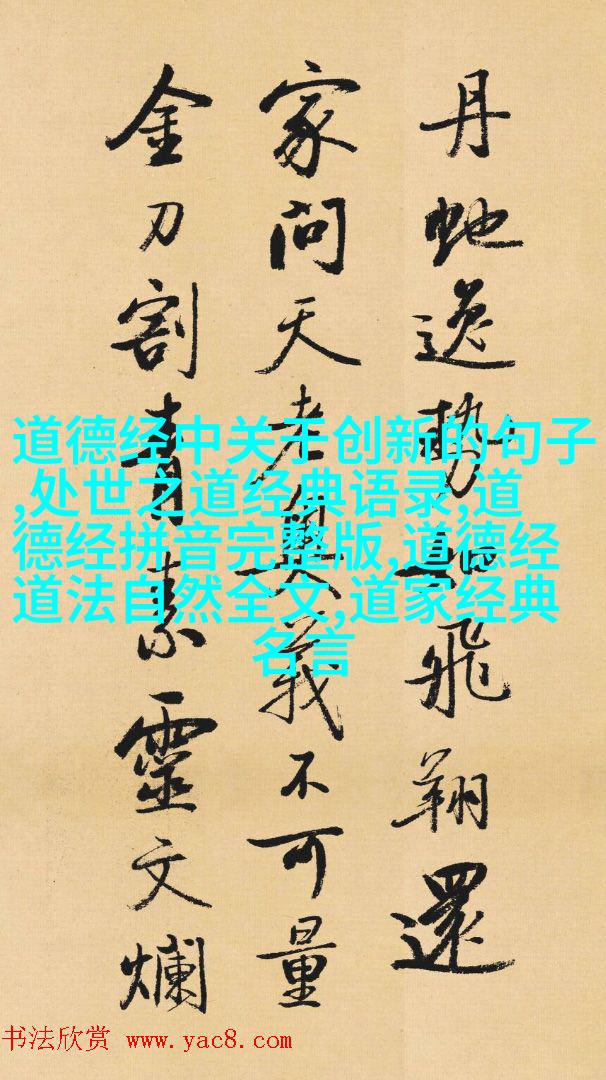 丹虵逸勢如飛翔還
家問天老奧義不可量
金刀割青素靈文爛
道德经中关于创新的句子
,处世之道经典语录,道
德经拼音完整版,道德经
道法自然全文,道家经典
名言
书法欣赏 www.yac8.com